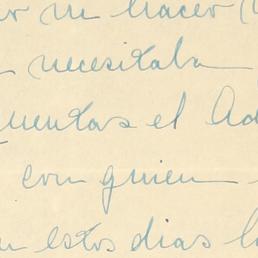 ni hacer
necesitaba
el Ad
con quien
estos dias